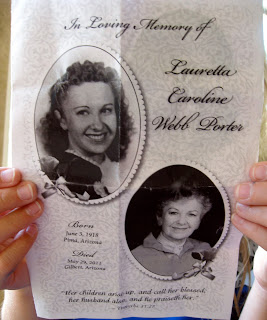 In Loving Memory of
Lauretta
Caroline
Webb Porter
Born
June 3, 1918
Pima, Arizona
Died
May 29, 2012
Gilbert, Arizona
"Her children arise up, and call her blessed;
her husband also, and he praiseth her."
Proverbs 31:28